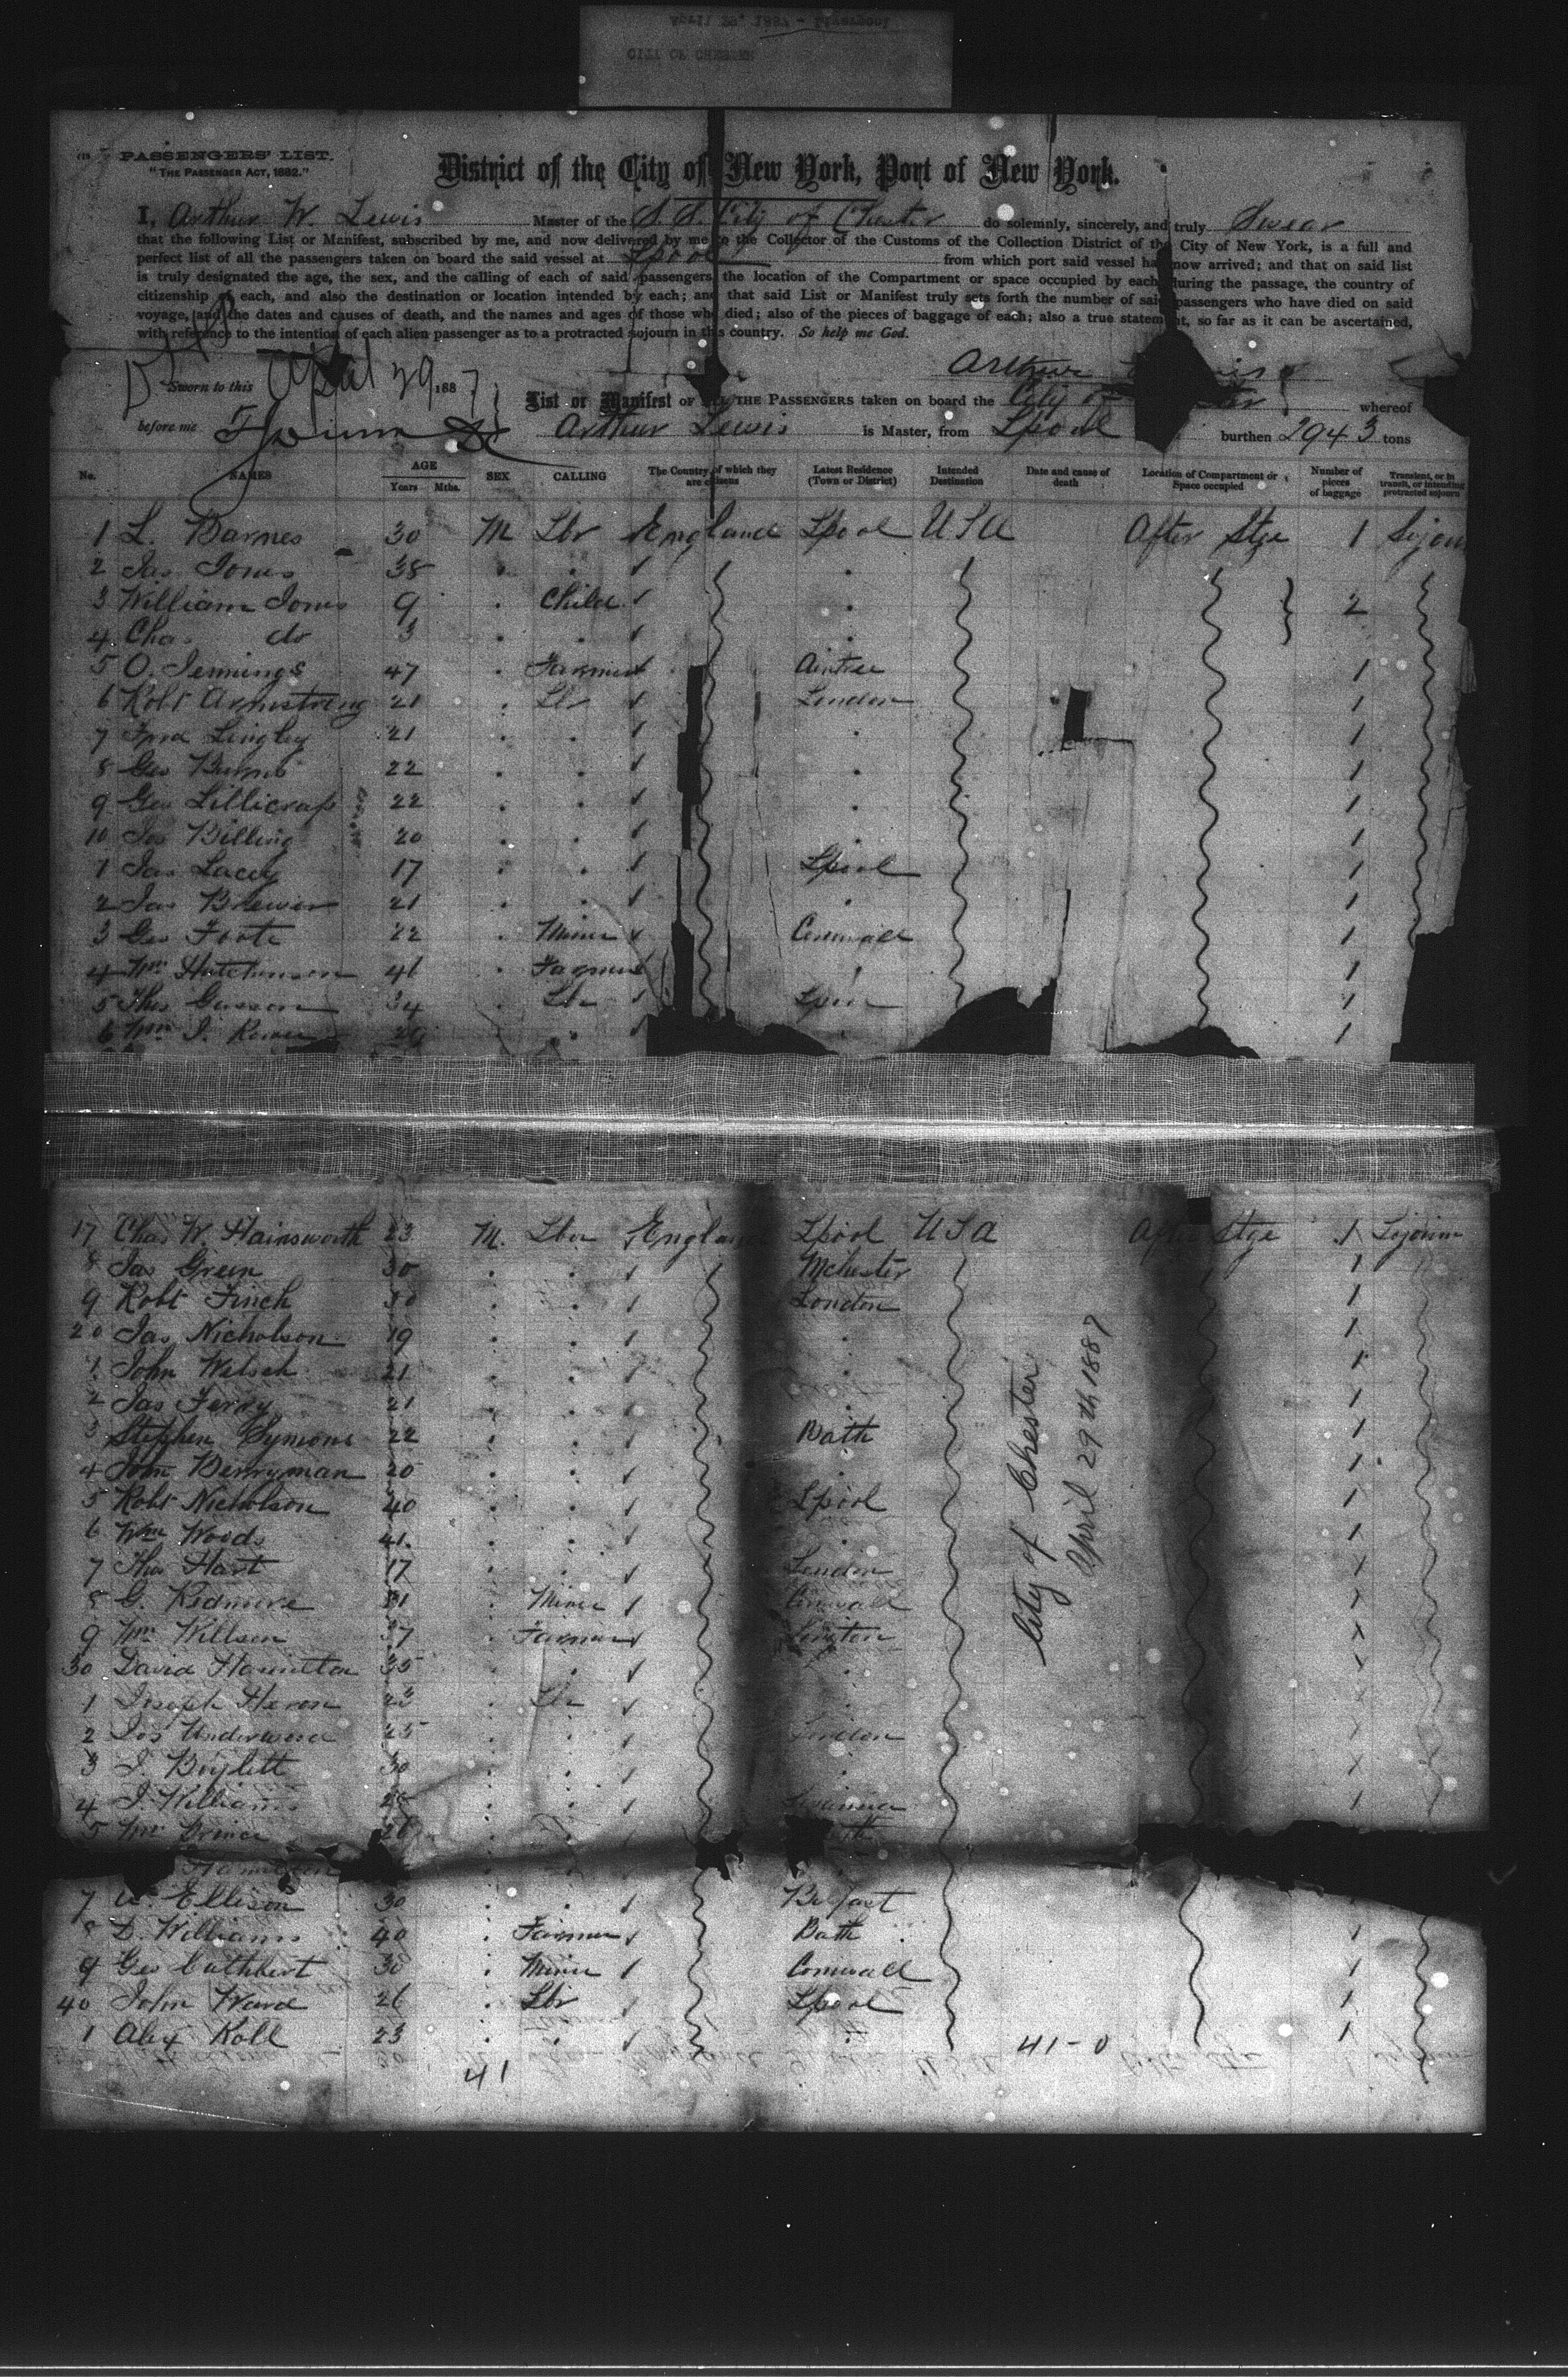 April 29, 1887 - Liverpool
CITY OF CHESTER
PASSENGERS' LIST.
"THE PASSENGER ACT, 1882."
District of the City of New York, Port of New York.
I, Arthur W. Lewis Master of the S. S. City of Chester do solemnly, sincerely, and truly Swear
that the following List or Manifest, subscribed by me, and now delivered by me to the Collector of the Customs of the Collection District of the City of New York, is a full and
perfect list of all the passengers taken on board the said vessel at Lpool from which port said vessel has now arrived; and that on said list
is truly designated the age, the sex, and the calling of each of said passengers, the location of the Compartment or space occupied by each during the passage, the country of
citizenship of each, and also the destination or location intended by each; and that said List or Manifest truly sets forth the number of said passengers who have died on said
voyage, and the dates and causes of death, and the names and ages of those who died; also of the pieces of baggage of each; also a true statement, so far as it can be ascertained,
with reference to the intention of each alien passenger as to a protracted sojourn in this country. So help me God.
Sworn to this April 29 1887
Arthur
before me
List or Manifest OF ALL THE PASSENGERS taken on board the City of whereof
Arthur Lewis is Master, from Lpool burthen 2943 tons
No. NAMES AGE Years Mths. SEX CALLING The Country of which they are citizens Latest Residence (Town or District) Intended Destination Date and cause of death Location of Compartment or Space occupied Number of pieces of baggage Transient, or in transit, or intending protracted sojourn
1 L. Barnes 30 M Lbr England Lpool USA After Stge 1 Sojou
2 Jas Jones 38
3 William Jones 9 Child 2
4 Chas do 3
5 O. Jennings 47 Farmer Aintree 1
6 Robt Armstrong 21 Lbr London 1
7 Fred Lingley 21 1
8 Geo Burns 22 1
9 Geo Lillicrap 22 1
10 Jos Billing 20 1
1 Jas Lacey 17 Lpool 1
2 Jas Brewer 21 1
3 Geo Foote 22 Miner Cornwall 1
4 Wm Hutchinson 41 Farmer 1
5 Thos 34 Lbr Lpool 1
6 Wm J. 1
17 Chas W. Hainsworth 23 M. Lbr England Lpool USA After Stge 1 Sojourn
8 Jas Green 30 Mchester 1
9 Robt Finch 30 London 1
20 Jas Nicholson 19 1
1 John Welsch 21 1
2 Jas Ferry 21 1
3 Stephen Symons 22 Bath 1
4 John Berryman 20 1
5 Robt Nicholson 40 Lpool 1
6 Wm Woods 41 1
7 Thos Hart 17 London 1
8 G. Redmore 31 Miner Cornwall 1
9 Wm Willson 37 Farmer 1
30 David Hamilton 35 1
1 Joseph Heron 23 Lbr 1
2 Jos Underwood 25 London 1
3 J. Boylett 30 1
4 J. Williams 1
5 Wm Prince 26
Hamilton
7 W. Ellison 30 Belfast
8 D. Williams 40 Farmer Bath 1
9 Geo Cuthbert 30 Miner Cornwall 1
40 John Ward 26 Lbr Lpool 1
1 Alex Roll 23 1
41
41-0
City of Chester
April 29th 1887